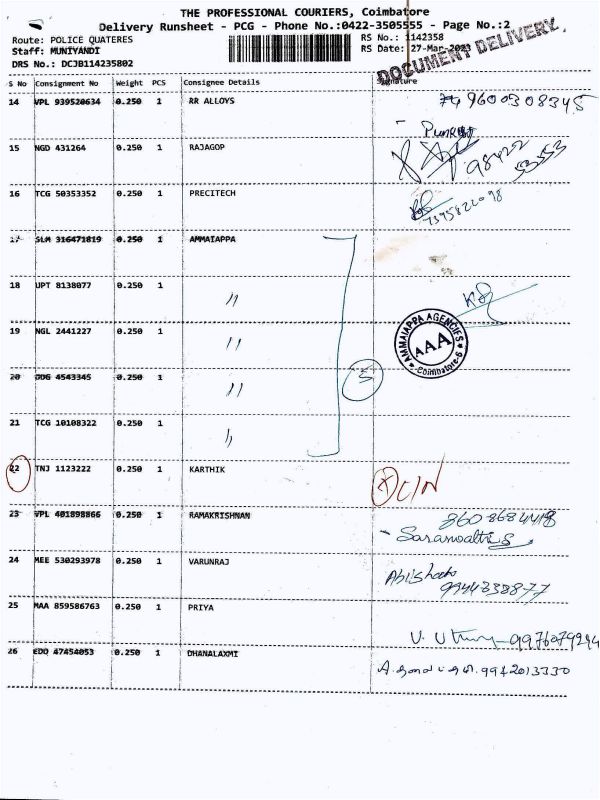 THE PROFESSIONAL COURIERS, Coimbatore
Delivery Runsheet - PCG - Phone No.:0422-3505555 - Page No.:2
Route: POLICE QUATERES
RS No.: 1142358
Staff: MUNIYANDI
RS Date: 27-Mar-2023
DRS No.: DCJB114235802
DOCUMENT DELIVERY.
S No Consignment No Weight PCS Consignee Details Signature
14 VPL 939520634 0.250 1 RR ALLOYS 9600308345
15 NGD 431264 0.250 1 RAJAGOP 98422 53553
16 TCG 50353352 0.250 1 PRECITECH 7395822098
17 SLM 316471819 0.250 1 AMMAIAPPA
18 UPT 8138077 0.250 1 〃
19 NGL 2441227 0.250 1 〃
AMMAIAPPA AGENCIES
AAA
Coimbatore-6
20 DDG 4543345 0.250 1 〃 5
21 TCG 10108322 0.250 1 〃
22 TNJ 1123222 0.250 1 KARTHIK CIN
23 VPL 401898866 0.250 1 RAMAKRISHNAN 8608684418
24 MEE 530293978 0.250 1 VARUNRAJ 9944338877
25 MAA 859586763 0.250 1 PRIYA
26 EDO 47454053 0.250 1 DHANALAXMI 9942013330